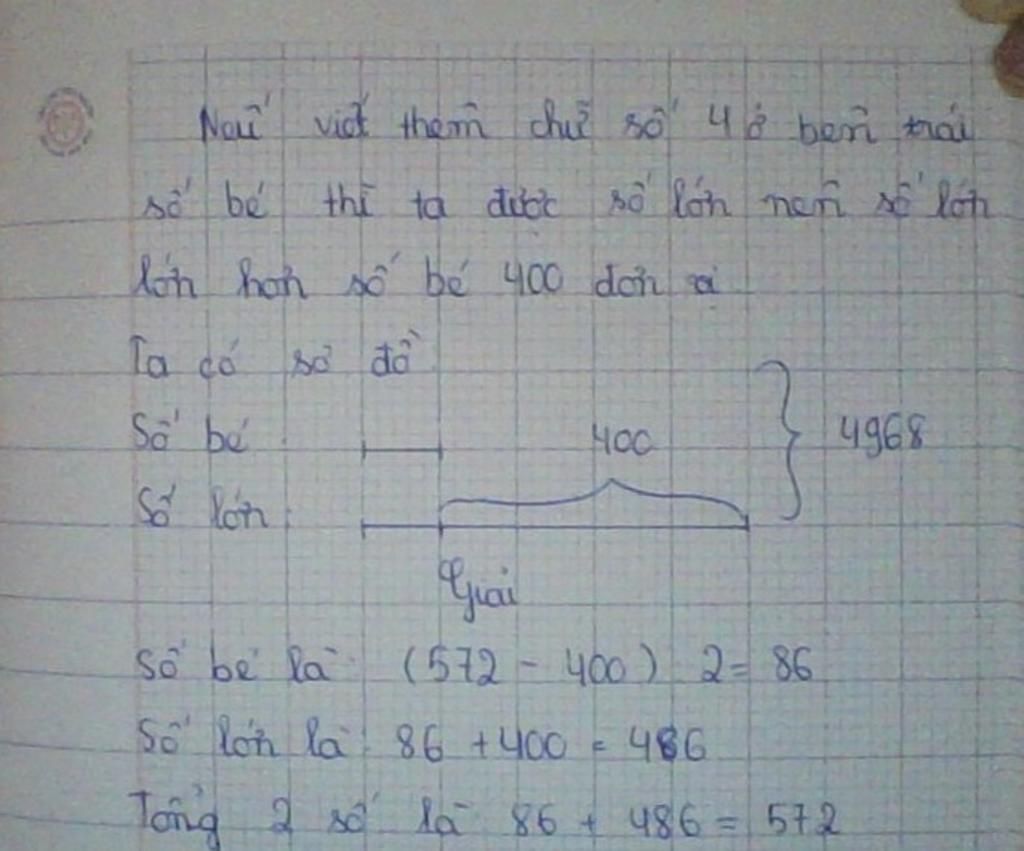 Nếu viết thêm chữ số 4 ở bên trái
số bé thì ta được số lớn nên số lớn
lớn hơn số bé 400 đơn vị
Ta có sơ đồ
Số bé
400
4968
Số lớn
Giải
Số bé là: (572 - 400) : 2 = 86
Số lớn là: 86 + 400 = 486
Tổng 2 số là 86 + 486 = 572